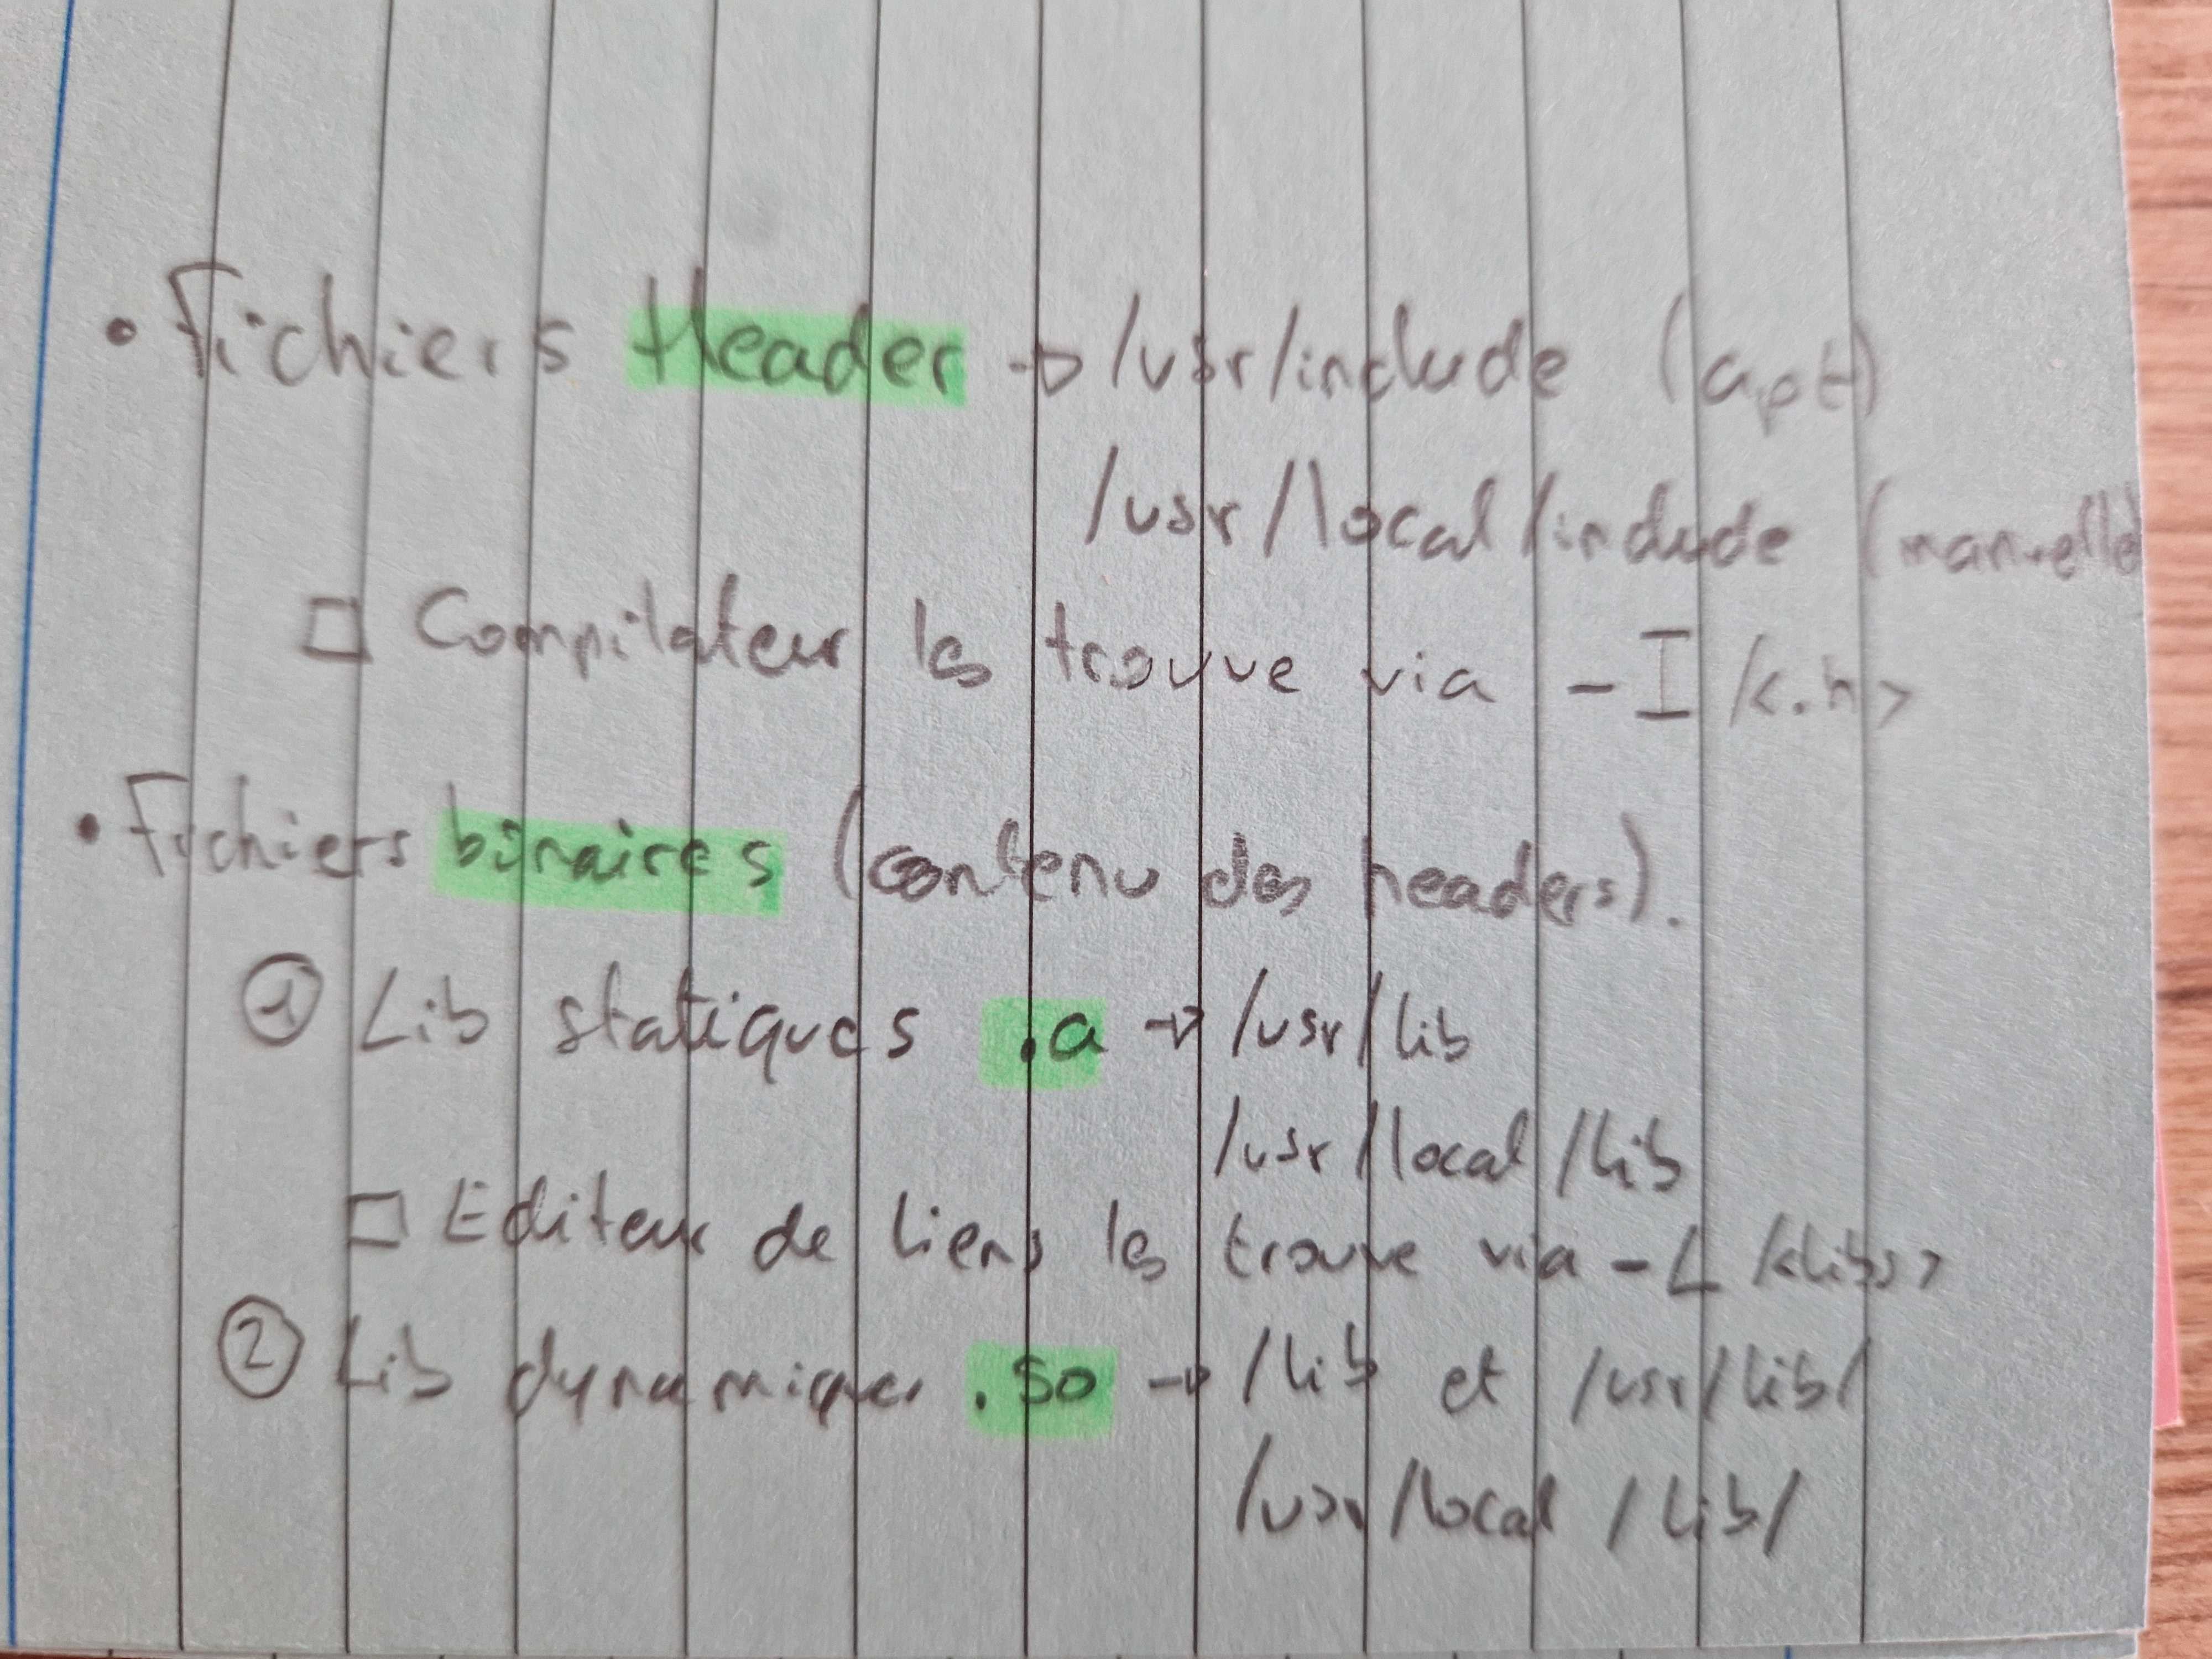 • Fichiers Header → /usr/include (apt)
/usr/local/include (manuelle
□ Compilateur les trouve via -I /<.h>
• Fichiers binaires (contenu des headers).
① Lib statiques .a → /usr/lib
/usr/local/lib
□ Editeur de liens les trouve via -L /<libs>
② Lib dynamiques .so → /lib et /usr/lib/
/usr/local/lib/